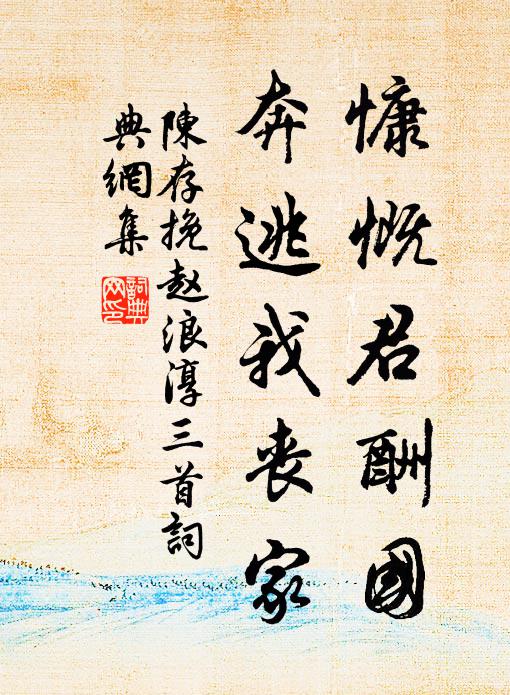 慷慨君酬國
奔逃我丧家
陳存挽赵浪淳三首詞
典網集
詞典
网印